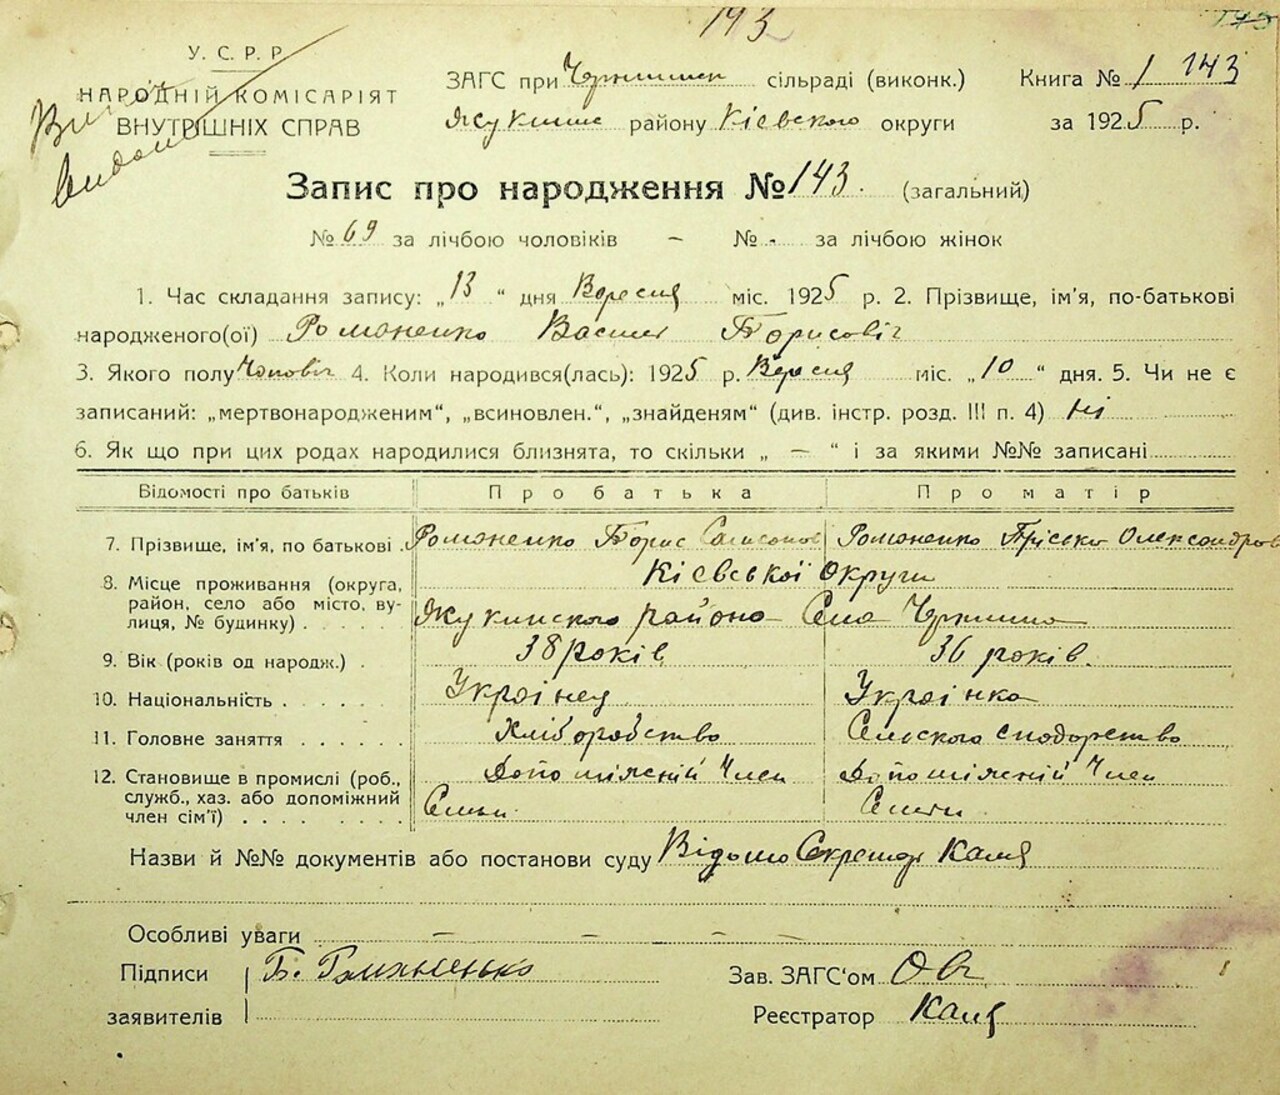 143
У. С. Р. Р
НАРОДНІЙ КОМІСАРІЯТ
ВНУТРІШНІХ СПРАВ
ЗАГС при сільраді (виконк.) Книга № 1 143
району Кіевского округи за 1925 р.
Запис про народження № 143. (загальний)
№ 69 за лічбою чоловіків – №- за лічбою жінок
1. Час складання запису: „13 “ дня Вересня міс. 1925 р. 2. Прізвище, ім'я, по-батькові
народженого(ої) Романенко Васил Борисовіч
3. Якого полу Чоловіч 4. Коли народився(лась): 1925 р. Вересня міс. „10 “ дня. 5. Чи не є
записаний: „мертвонародженим“, „всиновлен.“, „знайденям“ (див. інстр. розд. III п. 4) Ні
6. Як що при цих родах народилися близнята, то скільки „ — “ і за якими №№ записані
Відомості про батьків Про батька Про матір
7. Прізвище, ім'я, по батькові . Романенко Борис Романенко Пріська Олександров
8. Місце проживання (округа, район, село або місто, ву-лиця, № будинку) . . . . . Кієвської Округи
района Села
9. Вік (років од народж.) . 38 років 36 років.
10. Національність . . . . . . Украінец Украінка
11. Головне заняття . . . . . . Хліборобство Сельского сподорство
12. Становище в промислі (роб., служб., хаз. або допоміжний член сім'ї) . . . . . . . . . Член Член
Семьи
Назви й №№ документів або постанови суду Відомо Секретар Каця
Особливі уваги — — — —
Підписи Б. Романенько Зав. ЗАГС'ом
заявителів Реєстратор Каця